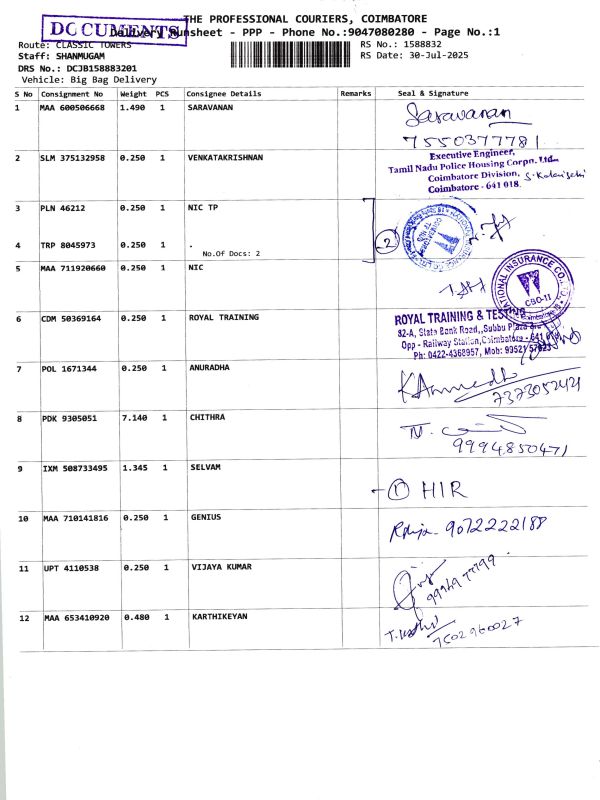 THE PROFESSIONAL COURIERS, COIMBATORE
DOCUMENTS
Delivery Runsheet - PPP - Phone No.:9047080280 - Page No.:1
Route: CLASSIC TOWERS
RS No.: 1588832
Staff: SHANMUGAM
RS Date: 30-Jul-2025
DRS No.: DCJB158883201
Vehicle: Big Bag Delivery
S No Consignment No Weight PCS Consignee Details Remarks Seal & Signature
1 MAA 600506668 1.490 1 SARAVANAN Saravanan
7550377781
2 SLM 375132958 0.250 1 VENKATAKRISHNAN
Executive Engineer,
Tamil Nadu Police Housing Corpn. Ltd.,
Coimbatore Division,
Coimbatore - 641 018.
3 PLN 46212 0.250 1 NIC TP
2
4 TRP 8045973 0.250 1 .
No.Of Docs: 2
5 MAA 711920660 0.250 1 NIC
NATIONAL INSURANCE CO.
CBO-II
6 CDM 50369164 0.250 1 ROYAL TRAINING
ROYAL TRAINING & TESTING
82-A, State Bank Road,,Subbu Plaza
Opp - Railway Station,Coimbatore - 641 018
Ph: 0422-4368957, Mob: 99521
7 POL 1671344 0.250 1 ANURADHA
7373052421
8 PDK 9305051 7.140 1 CHITHRA
9994850471
9 IXM 508733495 1.345 1 SELVAM
1 HIR
10 MAA 710141816 0.250 1 GENIUS
9072222188
11 UPT 4110538 0.250 1 VIJAYA KUMAR
12 MAA 653410920 0.480 1 KARTHIKEYAN
7502960027